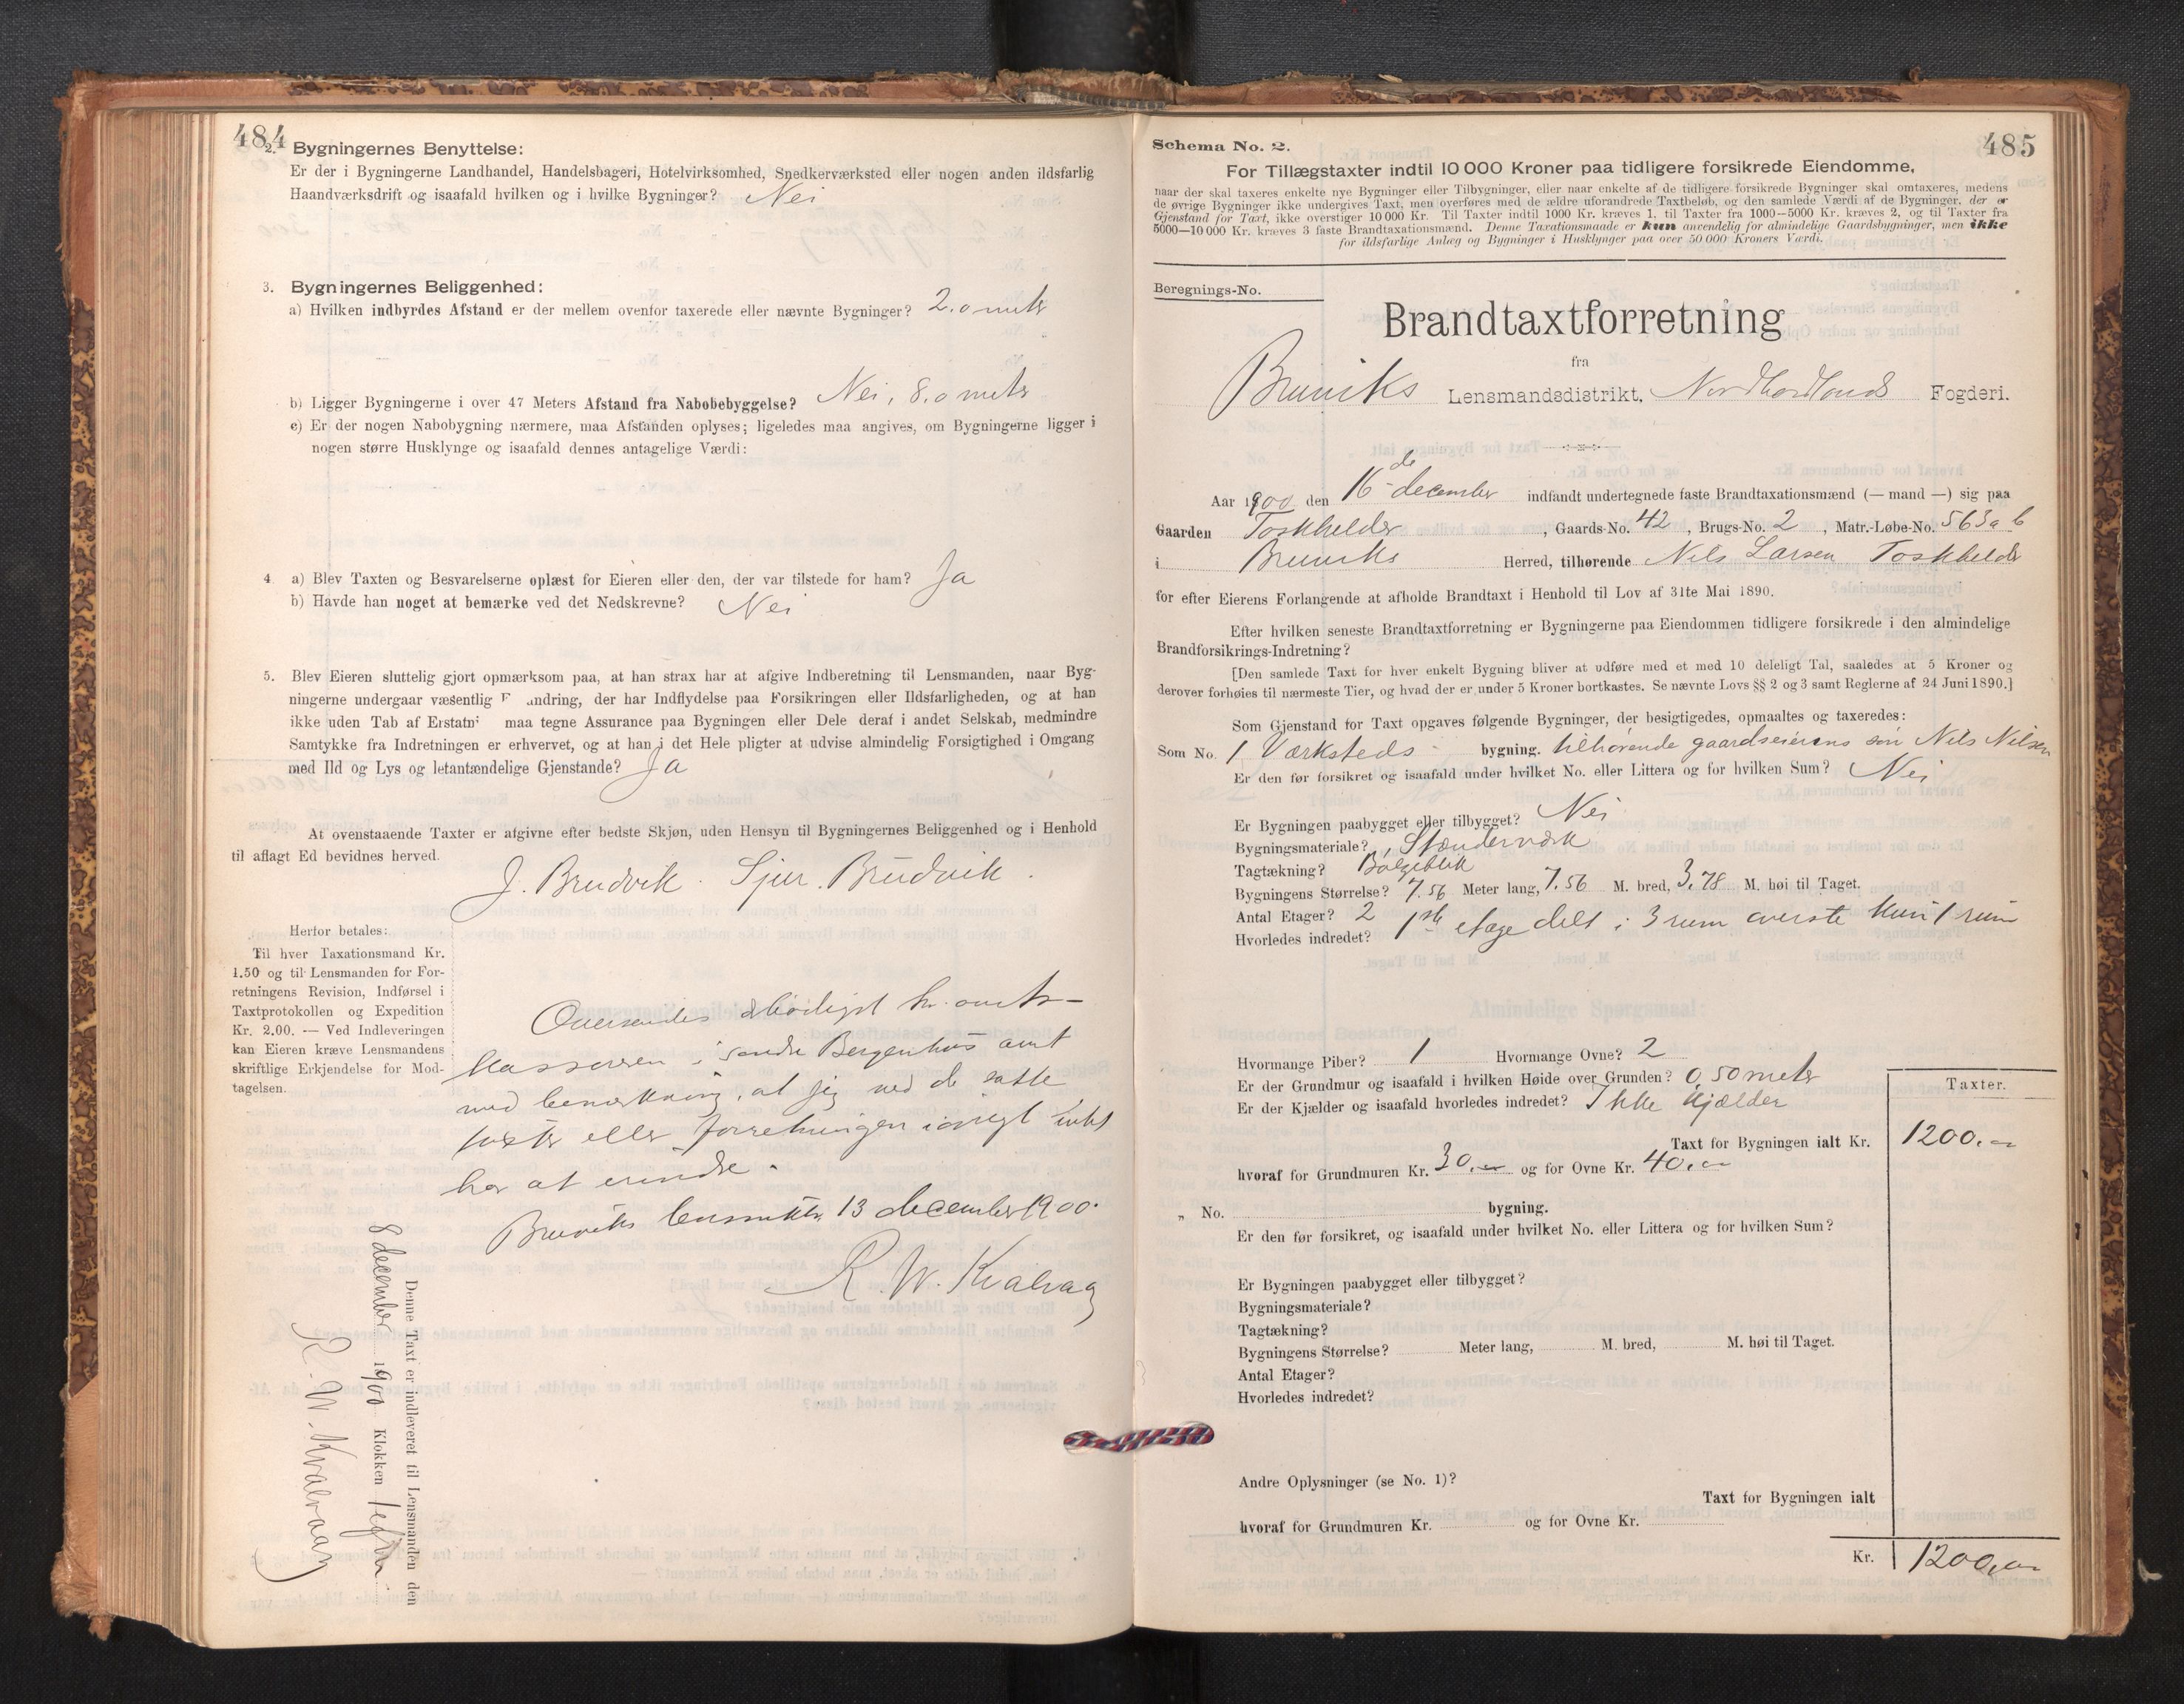 484
2. Bygningernes Benyttelse:
Er der i Bygningerne Landhandel, Handelsbageri, Hotelvirksomhed, Snedkerværksted eller nogen anden ildsfarlig
Haandværksdrift og isaafald hvilken og i hvilke Bygninger? Nei
3. Bygningernes Beliggenhed:
a) Hvilken indbyrdes Afstand er der mellem ovenfor taxerede eller nævnte Bygninger? 2.0 meter
b) Ligger Bygningerne i over 47 Meters Afstand fra Nabobebyggelse? Nei, 8.0 meter
c) Er der nogen Nabobygning nærmere, maa Afstanden oplyses; ligeledes maa angives, om Bygningerne ligger i
nogen større Husklynge og isaafald dennes antagelige Værdi:
4. a) Blev Taxten og Besvarelserne oplæst for Eieren eller den, der var tilstede for ham? Ja
b) Havde han noget at bemærke ved det Nedskrevne? Nei
5. Blev Eieren sluttelig gjort opmærksom paa, at han strax har at afgive Indberetning til Lensmanden, naar Byg-
ningerne undergaar væsentlig F andring, der har Indflydelse paa Forsikringen eller Ildsfarligheden, og at han
ikke uden Tab af Erstatn maa tegne Assurance paa Bygningen eller Dele deraf i andet Selskab, medmindre
Samtykke fra Indretningen er erhvervet, og at han i det Hele pligter at udvise almindelig Forsigtighed i Omgang
med Ild og Lys og letantændelige Gjenstande? Ja
At ovenstaaende Taxter er afgivne efter bedste Skjøn, uden Hensyn til Bygningernes Beliggenhed og i Henhold
til aflagt Ed bevidnes herved.
J. Brudvik. Sjur. Brudvik.
Herfor betales:
Til hver Taxationsmand Kr.
1.50 og til Lensmanden for For-
retningens Revision, Indførsel i
Taxtprotokollen og Expedition
Kr. 2.00. — Ved Indleveringen
kan Eieren kræve Lensmandens
skriftlige Erkjendelse for Mod-
tagelsen.
Oversendes ærbødigst hr. amts-
kasseren i søndre Bergenhus amt
med bemærkning, at jeg ved de satte
taxter eller forretningen iøvrigt intet
har at erindre.
Bruviks 13 december 1900.
R. W. Kvalvaag
Denne Taxt er indleveret til Lensmanden den
8 december 1900 Klokken 1 efm
R. W. Kvalvaag
485
Schema No. 2.
For Tillægstaxter indtil 10 000 Kroner paa tidligere forsikrede Eiendomme,
naar der skal taxeres enkelte nye Bygninger eller Tilbygninger, eller naar enkelte af de tidligere forsikrede Bygninger skal omtaxeres, medens
de øvrige Bygninger ikke undergives Taxt, men overføres med de ældre uforandrede Taxtbeløb, og den samlede Værdi af de Bygninger, der er
Gjenstand for Taxt, ikke overstiger 10 000 Kr. Til Taxter indtil 1000 Kr. kræves 1, til Taxter fra 1000—5000 Kr. kræves 2, og til Taxter fra
5000—10 000 Kr. kræves 3 faste Brandtaxationsmænd. Denne Taxationsmaade er kun anvendelig for almindelige Gaardsbygninger, men ikke
for ildsfarlige Anlæg og Bygninger i Husklynger paa over 50 000 Kroners Værdi.
Beregnings-No.
Brandtaxtforretning
fra
Bruviks Lensmandsdistrikt, Nordhordlands Fogderi.
Aar 1900 den 16de december indfandt undertegnede faste Brandtaxationsmænd (— mand —) sig paa
Gaarden Toskhelder, Gaards-No. 42, Brugs-No. 2, Matr.-Løbe-No. 563a b
i Bruviks Herred, tilhørende Nils Larsen Toskhelder
for efter Eierens Forlangende at afholde Brandtaxt i Henhold til Lov af 31te Mai 1890.
Efter hvilken seneste Brandtaxtforretning er Bygningerne paa Eiendommen tidligere forsikrede i den almindelige
Brandforsikrings-Indretning?
[Den samlede Taxt for hver enkelt Bygning bliver at udføre med et med 10 deleligt Tal, saaledes at 5 Kroner og
derover forhøies til nærmeste Tier, og hvad der er under 5 Kroner bortkastes. Se nævnte Lovs §§ 2 og 3 samt Reglerne af 24 Juni 1890.]
Som Gjenstand for Taxt opgaves følgende Bygninger, der besigtigedes, opmaaltes og taxeredes:
Som No. 1 Værksteds bygning. tilhørende gaardseierens søn Nils Nilsen
Er den før forsikret og isaafald under hvilket No. eller Littera og for hvilken Sum? Nei
Er Bygningen paabygget eller tilbygget? Nei
Bygningsmateriale? Stænderværk
Tagtækning? Bølgeblik
Bygningens Størrelse? 7.56 Meter lang, 7.56 M. bred, 3.78 M. høi til Taget.
Antal Etager? 2
Hvorledes indredet? 1ste etage delt i 3 rum øverste kun 1 rum
Hvormange Piber? 1 Hvormange Ovne? 2
Er der Grundmur og isaafald i hvilken Høide over Grunden? 0,50 meter
Er der Kjælder og isaafald hvorledes indredet? Ikke kjælder
Taxter.
Taxt for Bygningen ialt Kr. 1200.-
hvoraf for Grundmuren Kr. 30.- og for Ovne Kr. 40.-
„ No. bygning.
Er den før forsikret, og isaafald under hvilket No. eller Littera og for hvilken Sum?
Er Bygningen paabygget eller tilbygget?
Bygningsmateriale?
Tagtækning?
Bygningens Størrelse? Meter lang, M. bred, M. høi til Taget.
Antal Etager?
Hvorledes indredet?
Andre Oplysninger (se No. 1)?
Taxt for Bygningen ialt
hvoraf for Grundmuren Kr. og for Ovne Kr.
Kr. 1200,-